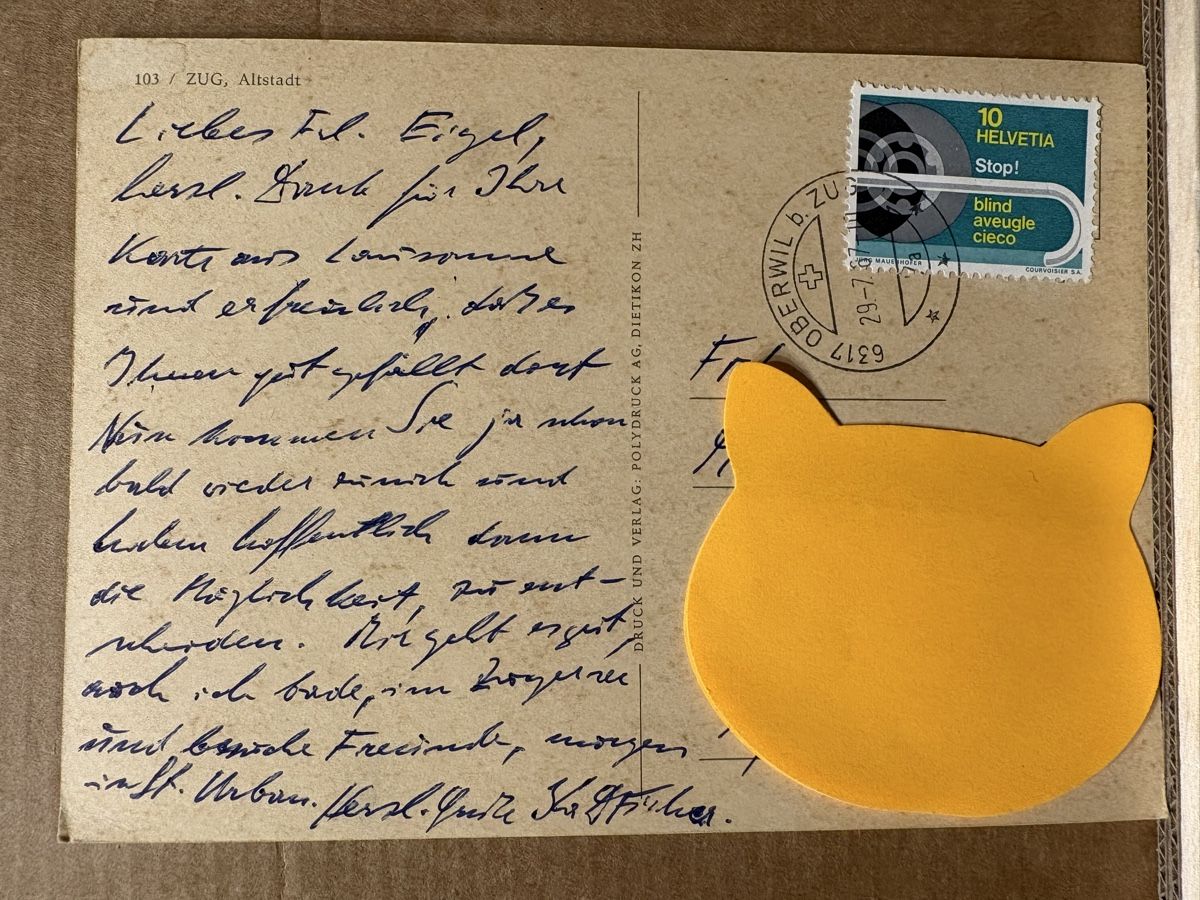 103 / ZUG, Altstadt
Liebes Frl. Eigel,
herzl. Dank für Ihre
Karte aus Lausanne
und erfreulich, daß es
Ihnen gut gefällt dort
Nun kommen Sie ja schon
bald wieder zurück und
haben hoffentlich dann
die Möglichkeit, zu ent-
scheiden. Mir geht es gut,
auch ich bade, im Zugersee
und besuche Freunde, morgen
in St. Urban. Herzl. Grüße Ihr Fischer.
DRUCK UND VERLAG: POLYDRUCK AG, DIETIKON ZH
10
HELVETIA
Stop!
blind
aveugle
cieco
JÜRG MAUERHOFER
COURVOISIER S.A.
6317 OBERWIL b. ZUG
29.-7.